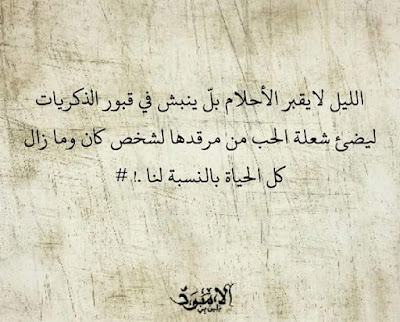 الليل لا يقبر الأحلام بلّ ينبش في قبور الذكريات
ليضئ شعلة الحب من مرقدها لشخص كان وما زال
كل الحياة بالنسبة لنا .! #